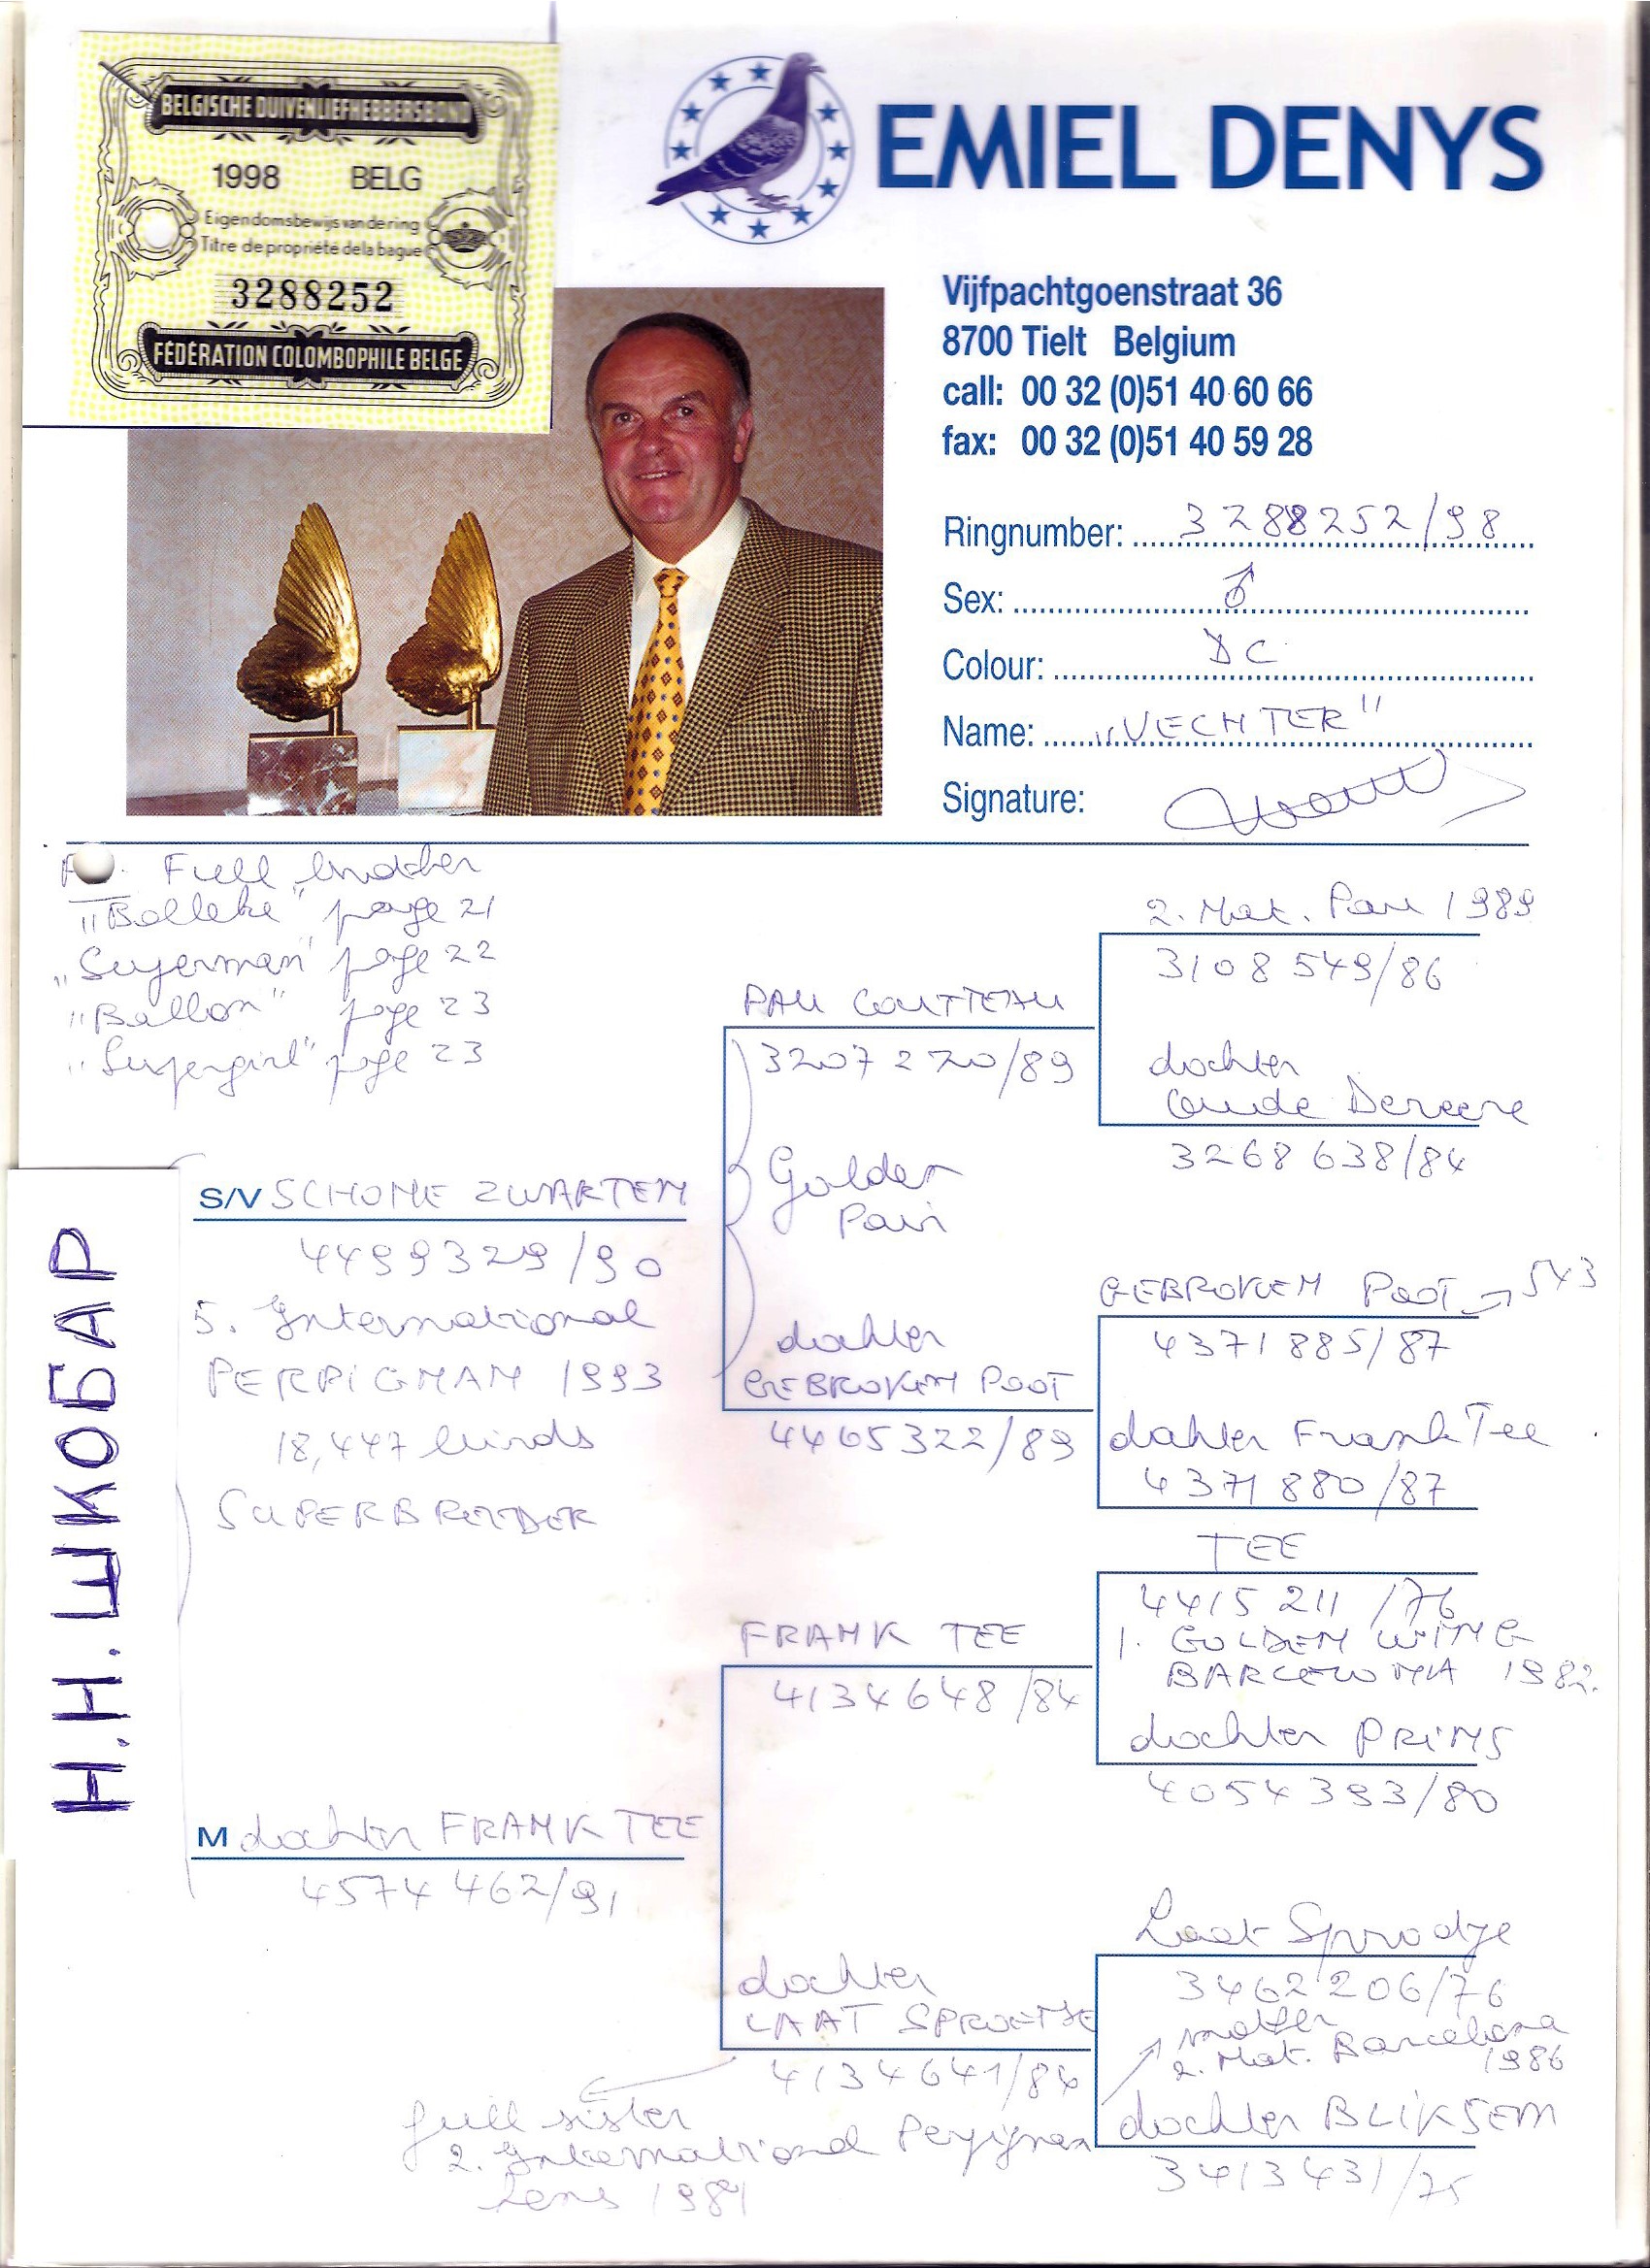 BELGISCHE DUIVENLIEFHEBBERSBOND
1998 BELG
Eigendomsbewijs van de ring
Titre de propriété de la bague
3288252
FÉDÉRATION COLOMBOPHILE BELGE
EMIEL DENYS
Vijfpachtgoenstraat 36
8700 Tielt Belgium
call: 00 32 (0)51 40 60 66
fax: 00 32 (0)51 40 59 28
Ringnumber: 3288252/98
Sex: ♂
Colour: DC
Name: "VECHTER"
Signature:
Full brother
"Bolleke" page 21
"Superman" page 22
"Ballon" page 23
"Supergirl" page 23
Н.Н. ШКОБАР
S/V SCHONE ZWARTEN
4499329/90
5. International
PERPIGNAN 1993
18,447 birds
SUPERBREEDER
M dochter FRANK TEE
4574462/91
PAU COUTTEAU
3207220/89
Golden
Pair
dochter
GEBROKEN POOT
4465322/89
FRANK TEE
4134648/84
dochter
LAAT SPROETJE
4134641/84
full sister
2. International Perpignan
hens 1984
2. Nat. Pau 1989
3108549/86
dochter
Oude Dereere
3268638/84
GEBROKEN POOT → 543
4371885/87
dochter Frank Tee
4371880/87
TEE
4415211/76
1. GOLDEN WING
BARCELONA 1982.
dochter PRINS
4054393/80
Laat Sproetje
3462206/76
mother
2. Nat. Barcelona
1986
dochter BLIKSEM
3413431/75